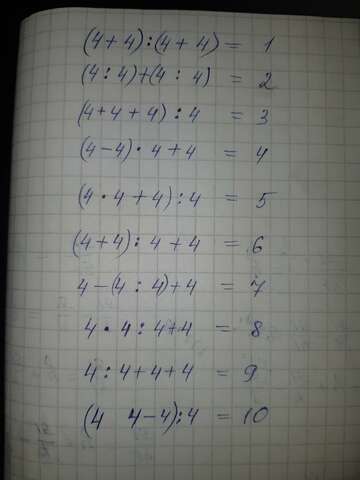 (4+4):(4+4) = 1
(4:4)+(4:4) = 2
(4+4+4):4 = 3
(4-4)·4+4 = 4
(4·4+4):4 = 5
(4+4):4+4 = 6
4-(4:4)+4 = 7
4·4:4+4 = 8
4:4+4+4 = 9
(4 4-4):4 = 10